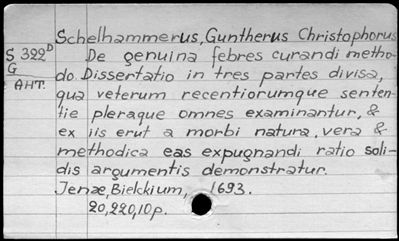 Schelhammerus, Guntherus Christophorus
S 322D De genuina febres curandi metho-
G do. Dissertatio in tres partes divisa,
AHT. qua veterum recentiorumque senten-
tie pleraque omnes examinantur, &
ex iis erut a morbi natura, vera &
methodica eas expugnandi ratio soli-
dis argumentis demonstratur.
Jenæ, Bielckium, 1693.
20,220,10p.